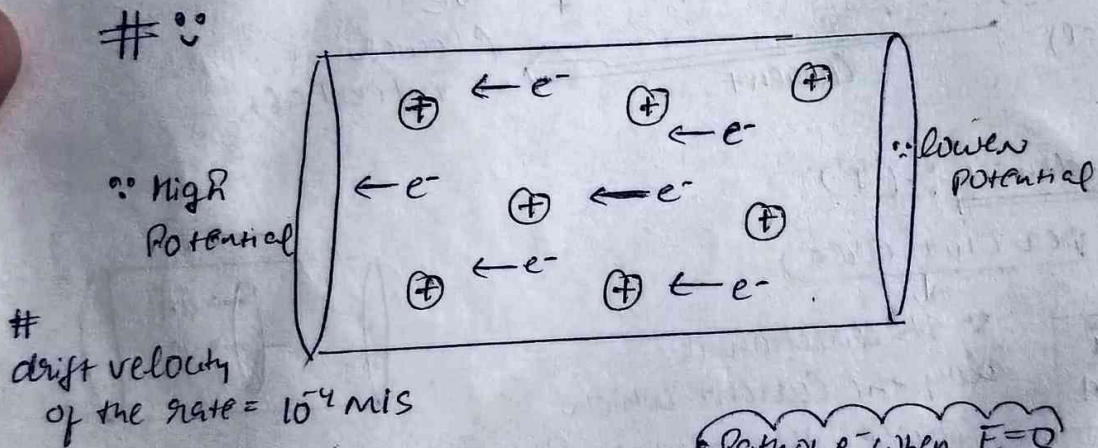 #
⊕ ← e⁻ ⊕ ⊕
← e⁻
∵ High
Potential
← e⁻ ⊕ ← e⁻ ⊕
∵ lower
potential
⊕ ← e⁻ ⊕ ← e⁻
#
drift velocity
of the rate = 10⁻⁴ m/s
Path of e⁻ when E=0